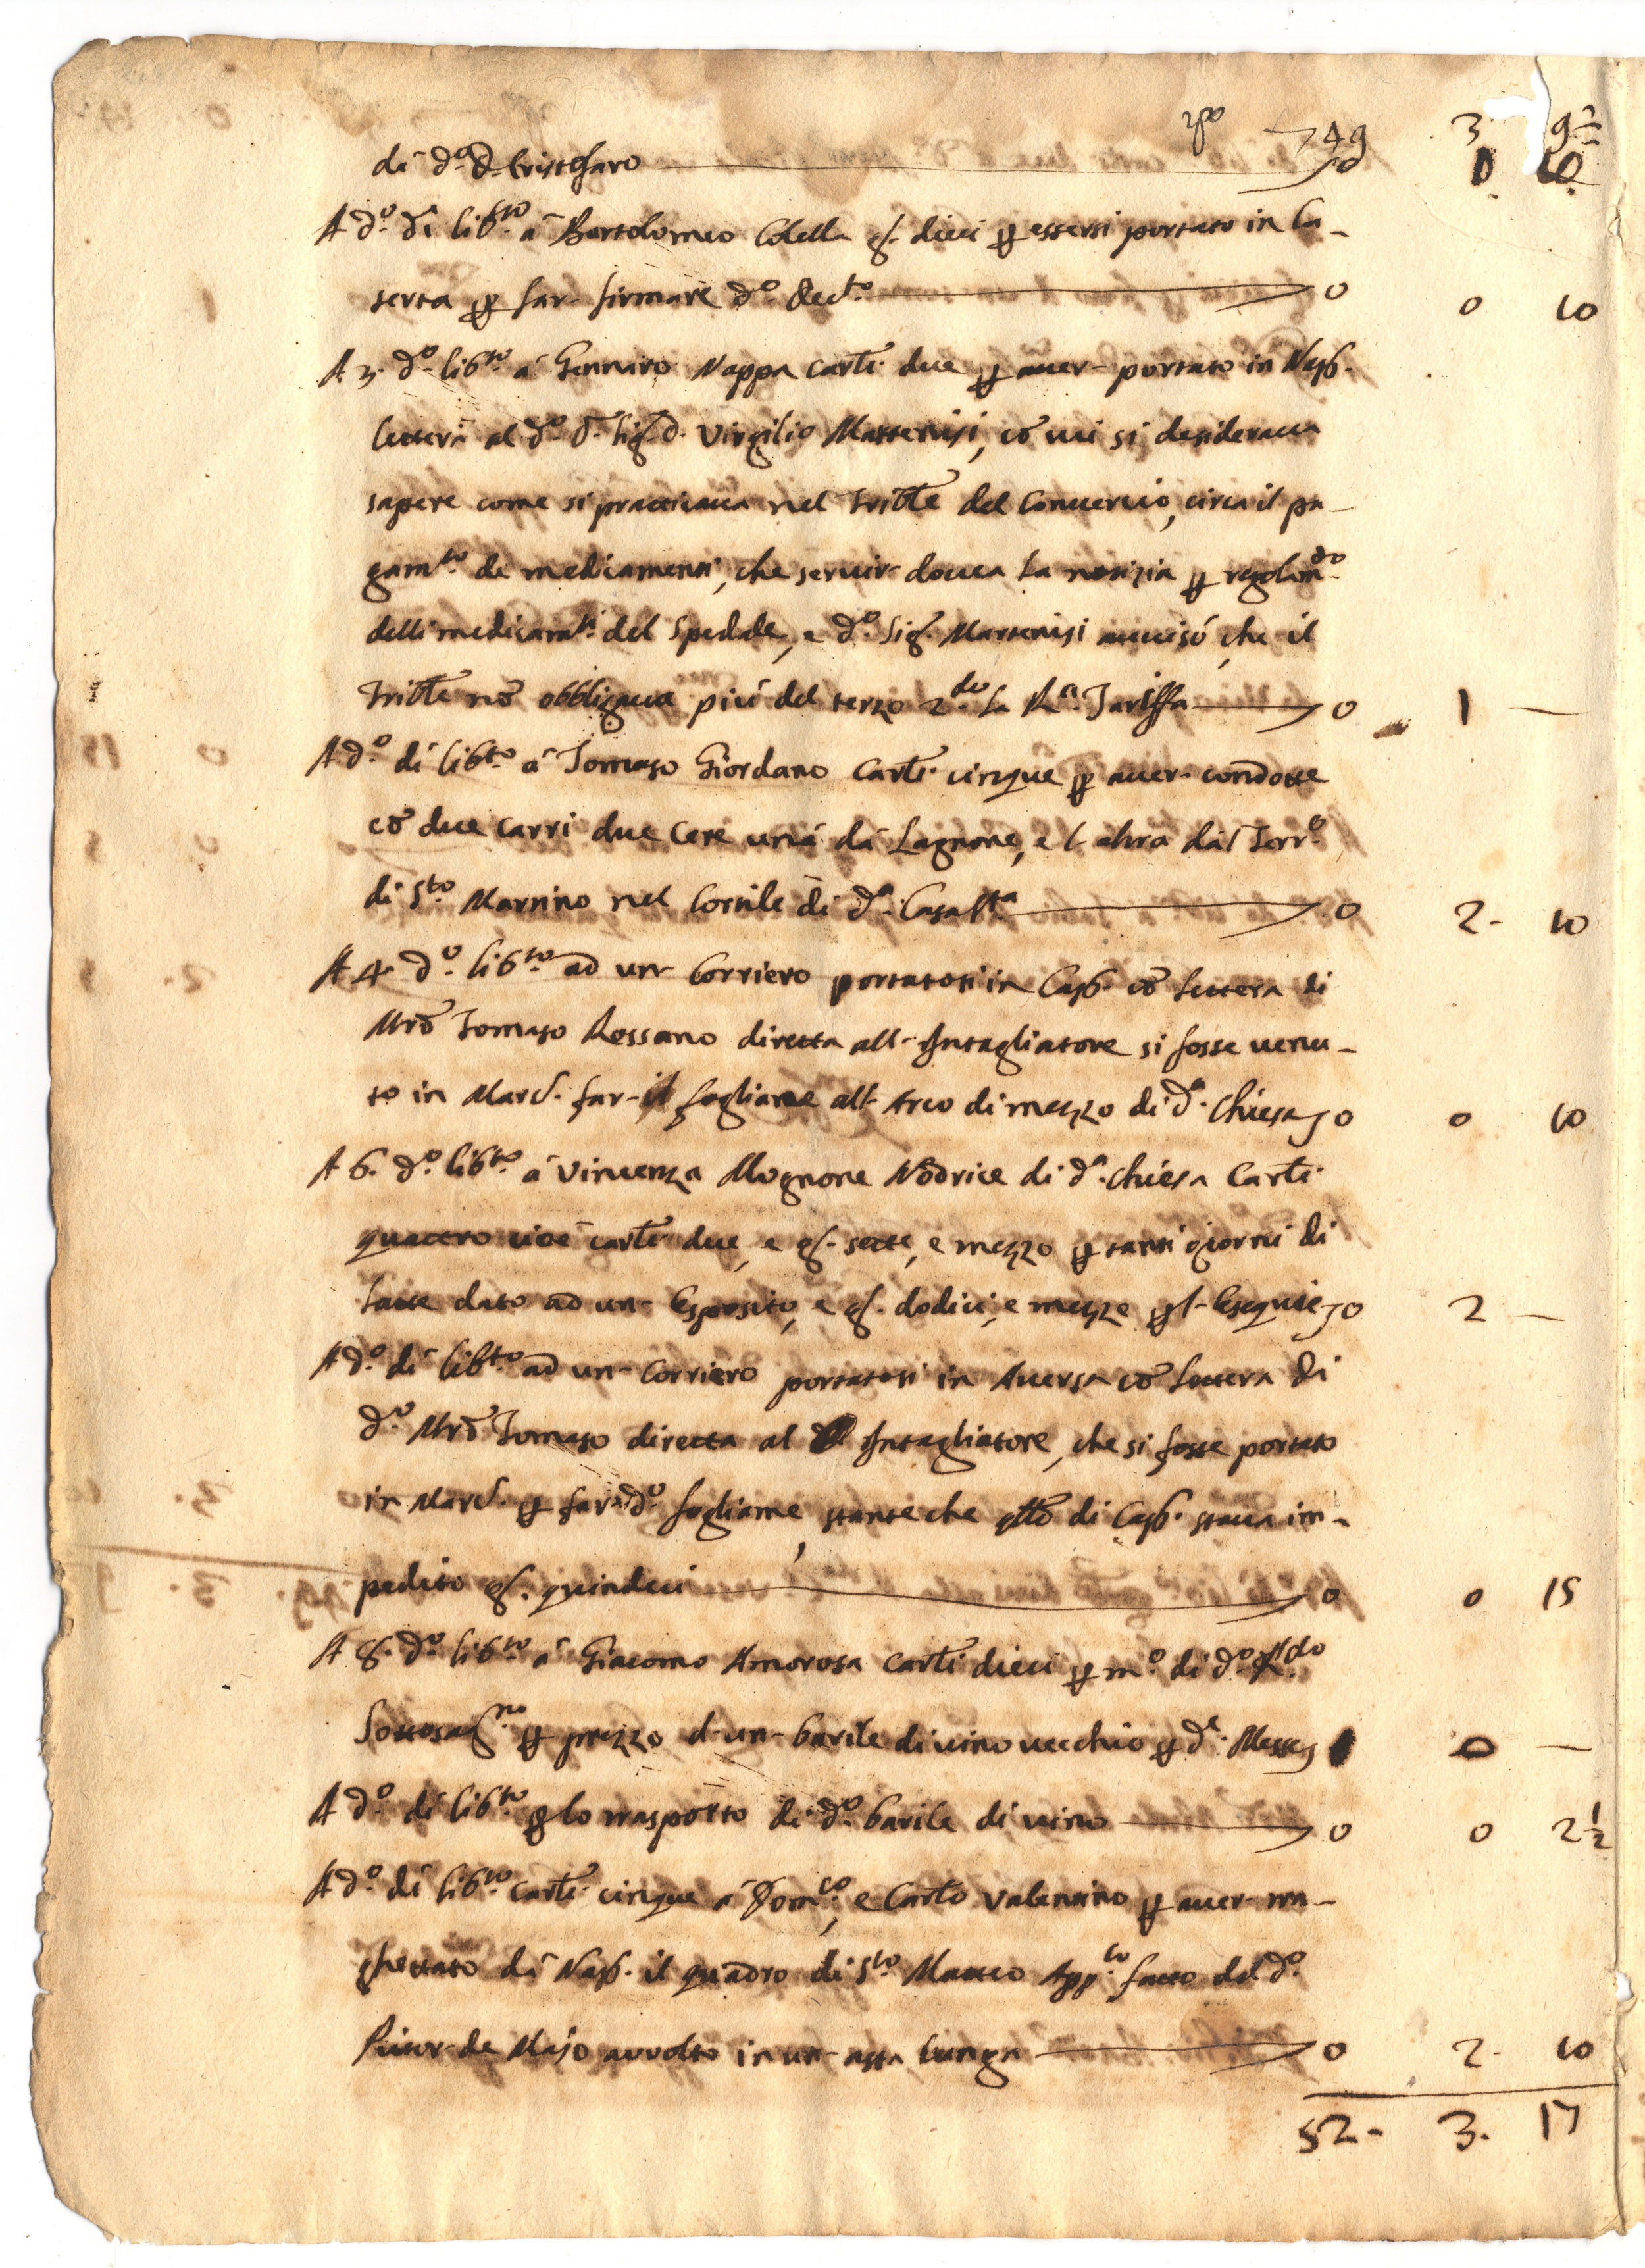 rpto 49 3 9 1/2
di d.º D. Cristofaro 0 1 10
A d.º dì lib.to à Bartolomeo Colella g.^ dieci p essersi portato in Ca-
serta p far firmare d.º Dec.to 0 0 10
A 3. d.º lib.to à Gennaro Nappa carli due p auer portato in Nap.
lettera al d.º Sig. D. Virgilio Martenisi, cō cui si desideraua
sapere come si practicaua nel Trible del Conmercio, circa il pa-
gam.to de medicamenti, che seruir doueua la notizia p regolam.to
delli medicam.ti del Spedale, e d.º Sig. Martenisi auuisò, che il
Trible nō obbligaua più del terzo 2.do la R.a Tariffa 0 1 —
A d.º dì lib.to à Tomaso Giordano Carli cinque p auer condotte
cō due carri due Cere una da Lagnone, e l'altra dal Terr.º
di S.to Martino nel Cortile di d.a Casa S.ta 0 2 10
A 4. d.º lib.to ad un Corriero portatosi in Cap. cō lettera di
Mrō Tomaso Rossano diretta all'Intagliatore si fosse venu-
to in Marc. far il fogliame all'Arco di mezzo di d.a Chiesa 0 0 10
A 6. d.º lib.to à Vincenza Mugnone Nōdrice di d.a Chiesa Carli
quattro cioè carli due, e g.^ sette, e mezzo p tanti giorni di
latte dato ad un Esposito, e g.^ dodici, e mezze p l'Esequie 0 2 —
A d.º dì lib.to ad un Corriero portatosi in Auersa cō lettera di
d.º Mrō Tomaso diretta al Intagliatore, che si fosse portato
in Marc. p far d.º fogliame, stante che qllō di Cap. staua im-
pedito g.^ quindeci 0 0 15
A 8. d.º lib.to à Giacomo Amorosa carli dieci p m.º di d.º
Sottosag.no p prezzo d'un barile di vino vecchio p d.e Messe 1 0 —
A d.º dì lib.to p lo trasporto di d.º barile di vino 0 0 2 1/2
A d.º dì lib.to carli cinque à Dom.co, e Carlo Valentino p auer tra-
ghettato da Nap. il quadro di S.to Matteo App.lo fatto dal d.º
Pittor de Majo auuolto in un asta lunga 0 2. 10
52. 3. 17